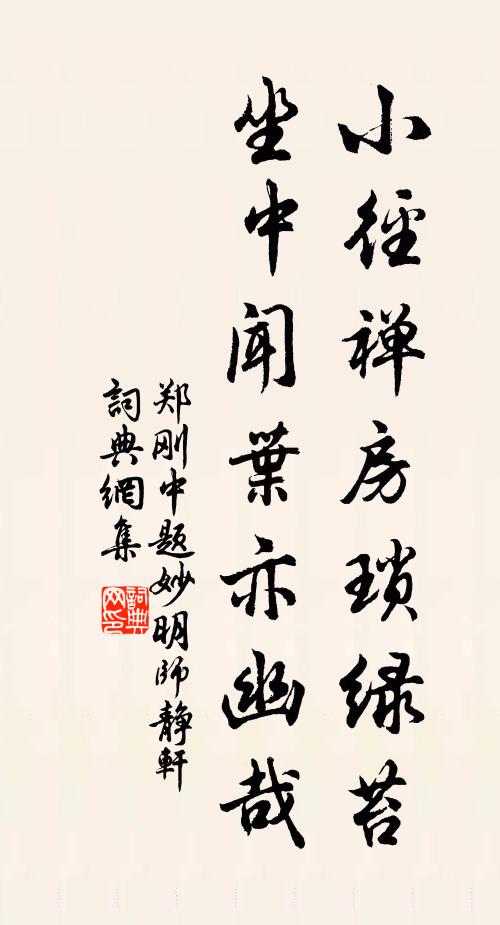 小徑禅房瑣緑苔
坐中闻葉亦幽哉
郑刚中题妙明师静軒
詞典網集
詞典网印